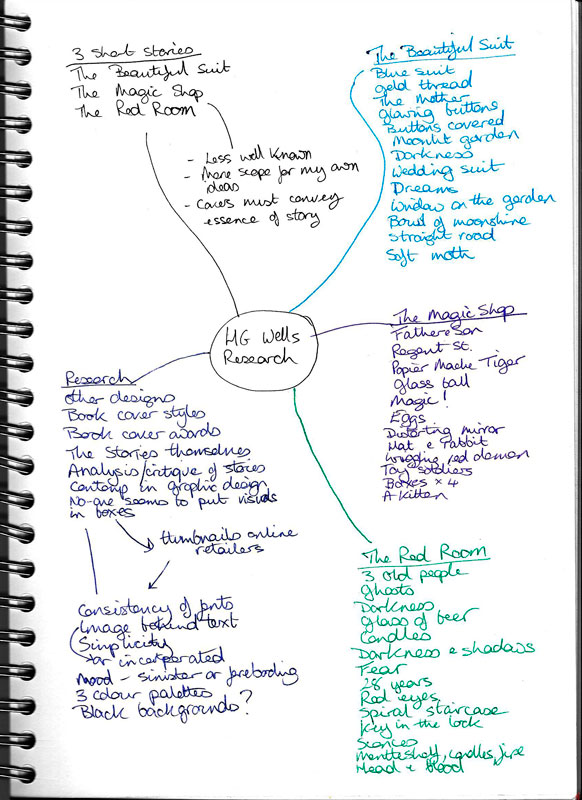 3 Short Stories
The Beautiful Suit
The Magic Shop
The Red Room
- Less well known
- More scope for my own
ideas
- Covers must convey
essence of story
The Beautiful Suit
Blue suit
gold thread
The Mother
Glowing buttons
Buttons covered
Moonlit garden
Darkness
Wedding suit
Dreams
Window on the garden
Bowl of moonshine
Straight road
Soft moth
HG Wells
Research
The Magic Shop
Father & Son
Regent St.
Papier Mache Tiger
Glass ball
Magic!
Eggs
Distorting mirror
Hat & rabbit
Wriggling red demon
Toy soldiers
Boxes x 4
A Kitten
Research
Other designs
Book cover styles
Book cover awards
The stories themselves
Analysis/critique of stories
Contemp in graphic design
No-one seems to put visuals
in boxes
thumbnails online
retailers
Consistency of fonts
Image behind text
Simplicity
Star incorporated
Mood - sinister or foreboding
3 colour palettes
Black backgrounds?
The Red Room
3 old people
Ghosts
Darkness
Glass of beer
Candles
Darkness & shadows
Fear
28 years
Red eyes
Spiral staircase
Key in the lock
Sconces
Mantleshelf, candles, fire
Head & blood